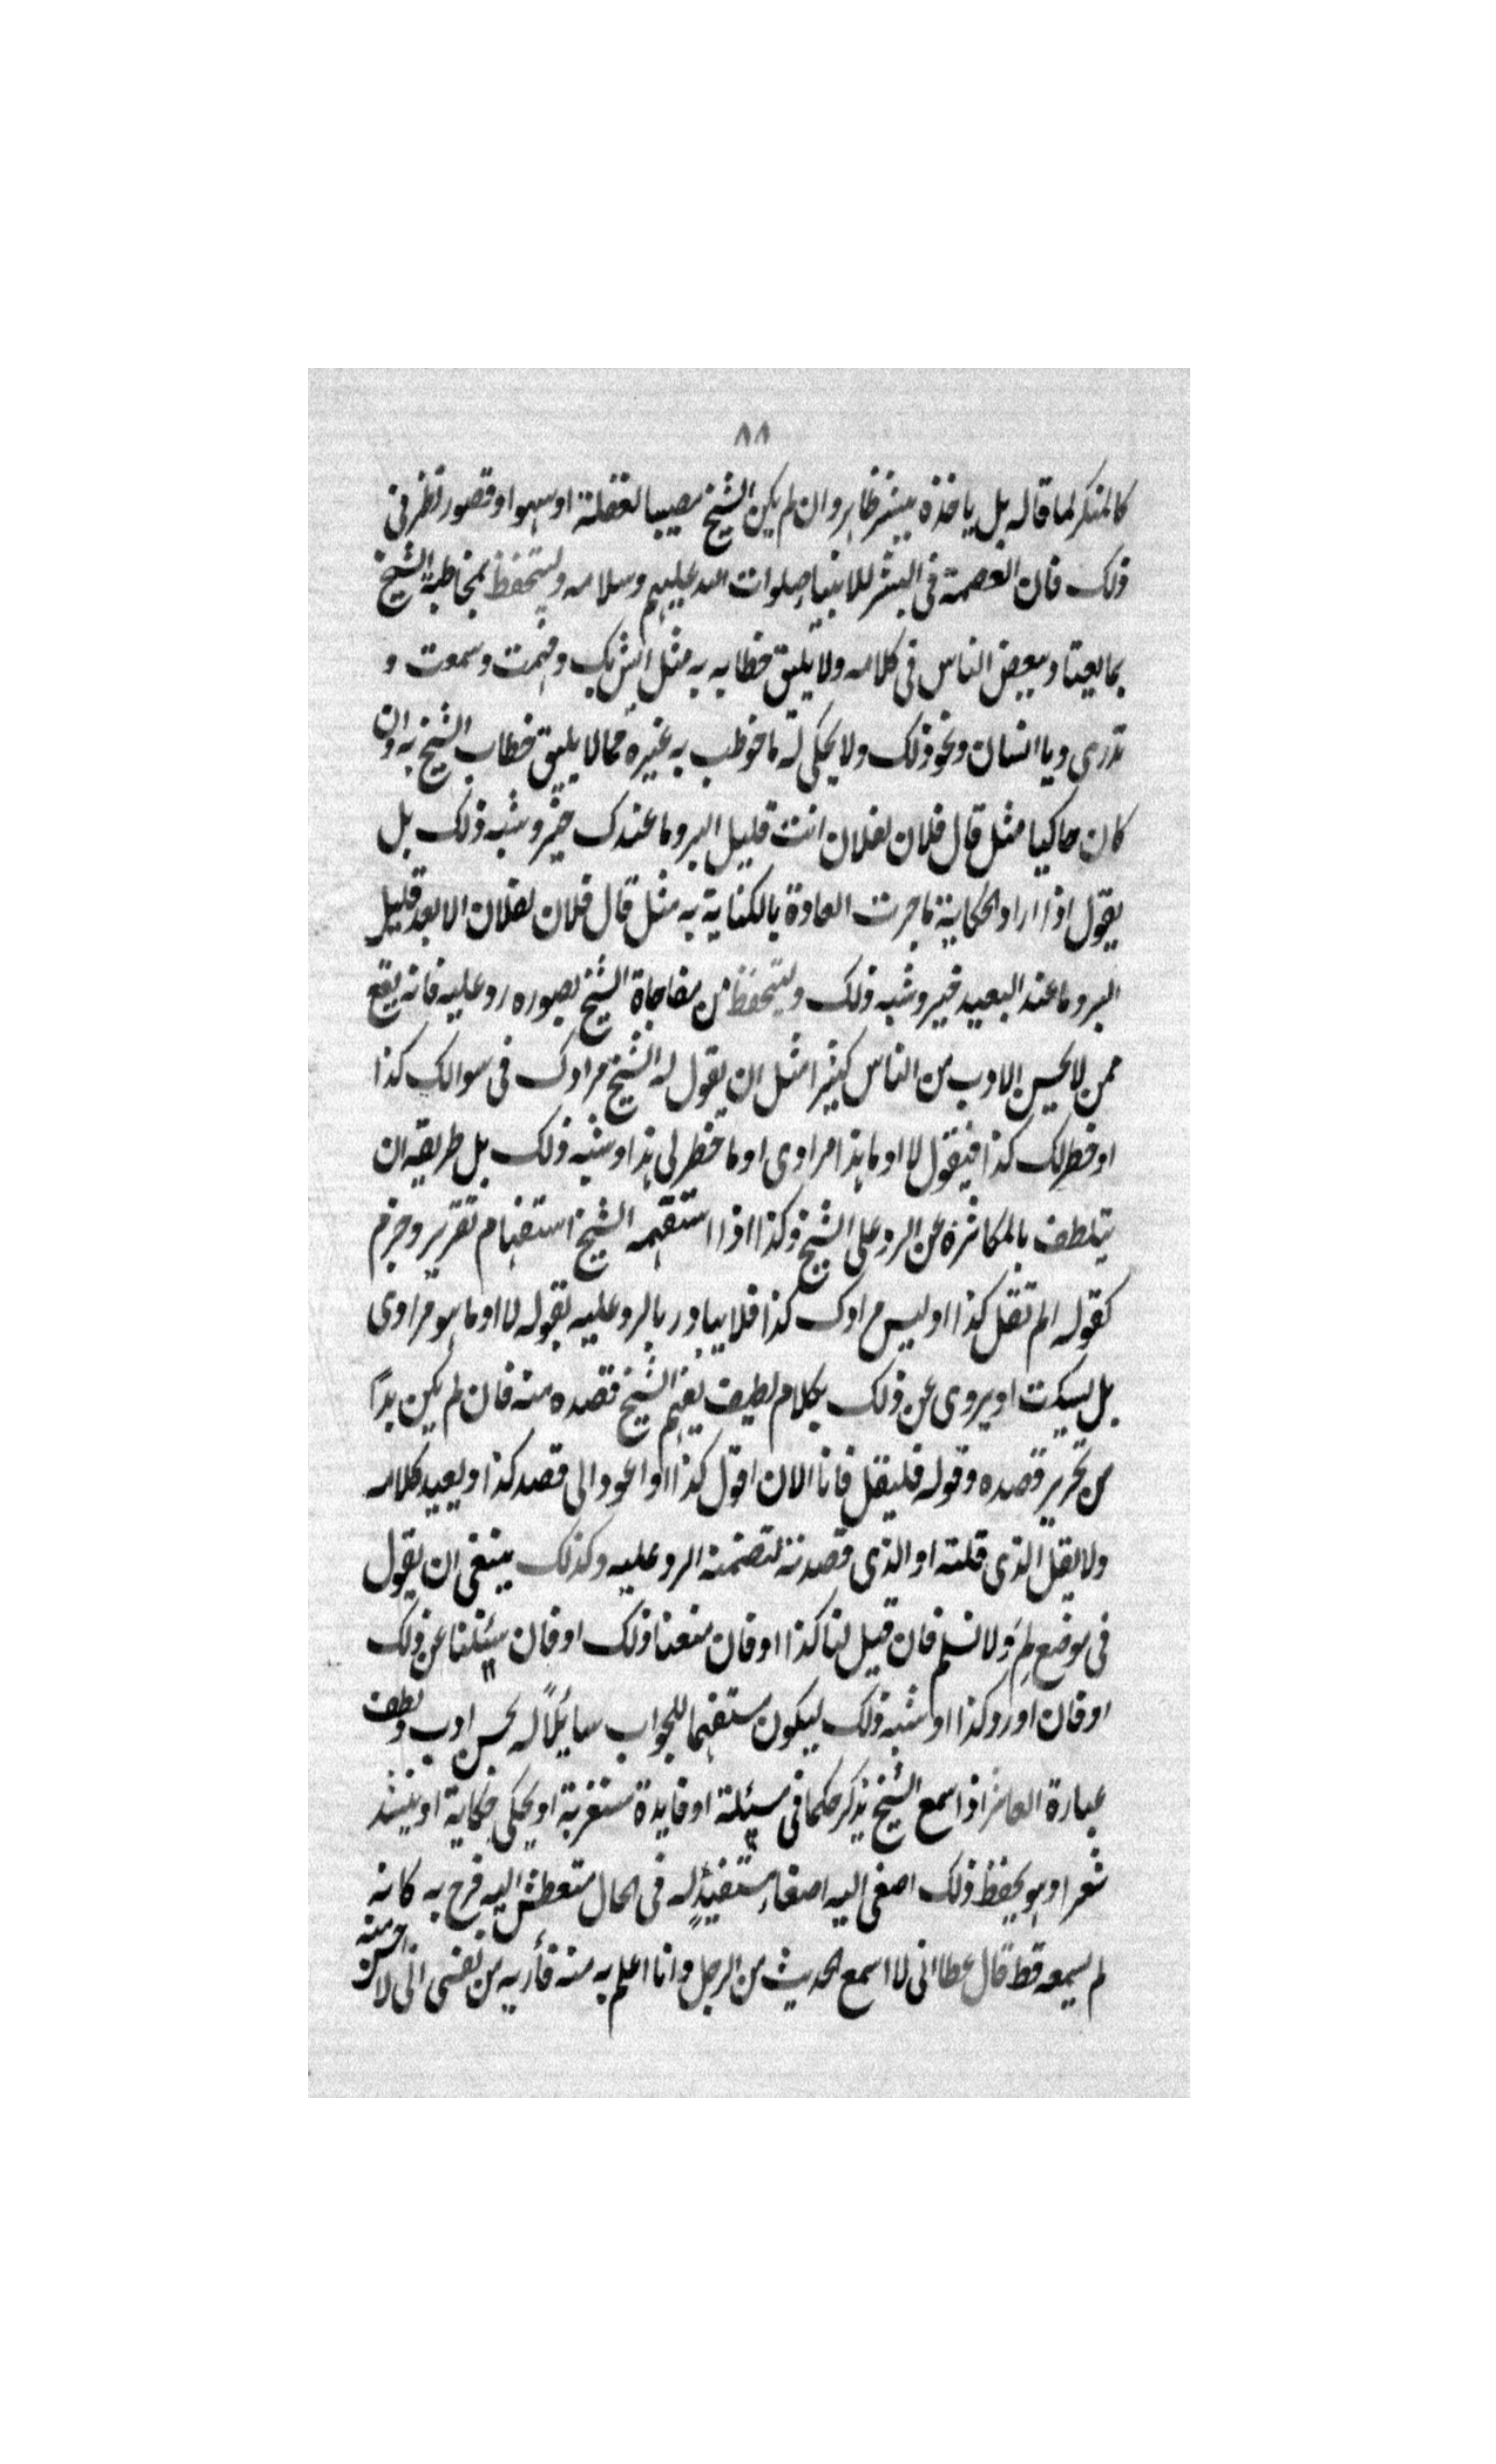 ٨٨
كالمنكر لما قاله بل ياخذه ببشر ظاهر وان لم يكن الشيخ مصيبا لغفلة او سهو او قصور نظر فى
ذلك فان العصمة فى البشر للانبياء صلوات الله عليهم وسلامه وليتحفظ بمخاطبة الشيخ
بما يعتاد بعض الناس فى كلامه ولا يليق خطابه به مثل ايش بك وفهمت وسمعت و
تدرى ويا انسان ونحو ذلك ولا يحكى له ما خوطب به غيره مما لا يليق خطاب الشيخ به وان
كان حاكيا مثل قال فلان لفلان انت قليل البر وما عندك خير وشبه ذلك بل
يقول اذا اراد الحكاية ما جرت العادة بالكناية به مثل قال فلان لفلان الابعد قليل
البر وما عند البعيد خير وشبه ذلك وليتحفظ من مفاجاة الشيخ بصوره رد عليه فانه يقع
ممن لا يحسن الادب من الناس كثيرا مثل ان يقول له الشيخ مرادك فى سوالك كذا
او خطر لك كذا فيقول لا او ما هذا مرادى او ما خطر لى هذا وشبه ذلك بل طريقه ان
يتلطف بالمكاشرة عن الرد على الشيخ وكذا اذا استفهمه الشيخ استفهام تقرير وجزم
كقوله الم تقل كذا او ليس مرادك كذا فلا يبادر بالرد عليه بقوله لا او ما هو مرادى
بل يسكت او يروى عن ذلك بكلام لطيف يفهم الشيخ قصده منه فان لم يكن بدًا
من تحرير قصده وقوله فليقل فانا الان اقول كذا او اعود الى قصد كذا ويعيد كلامه
ولا يقل الذى قلته او الذى قصدته لتضمنه الرد عليه وكذلك ينبغى ان يقول
فى موضع لم ولا نسلم فان قيل لنا كذا او فان منعنا ذلك او فان سئلنا عن ذلك
او فان اورد كذا او شبه ذلك ليكون مستفهما للجواب سايلًا له بحسن ادب ولطف
عبارة العاشر اذا سمع الشيخ يذكر حكما فى مسئلة او فايدة مستغربة او يحكى حكاية او ينشد
شعرا وهو يحفظ ذلك اصغى اليه اصغاء مستفيدٍ له فى الحال متعطش اليه فرح به كانه
لم يسمعه قط قال عطا انى لا اسمع الحديث من الرجل وانا اعلم به منه فأريه من نفسى انى لا احسن منه